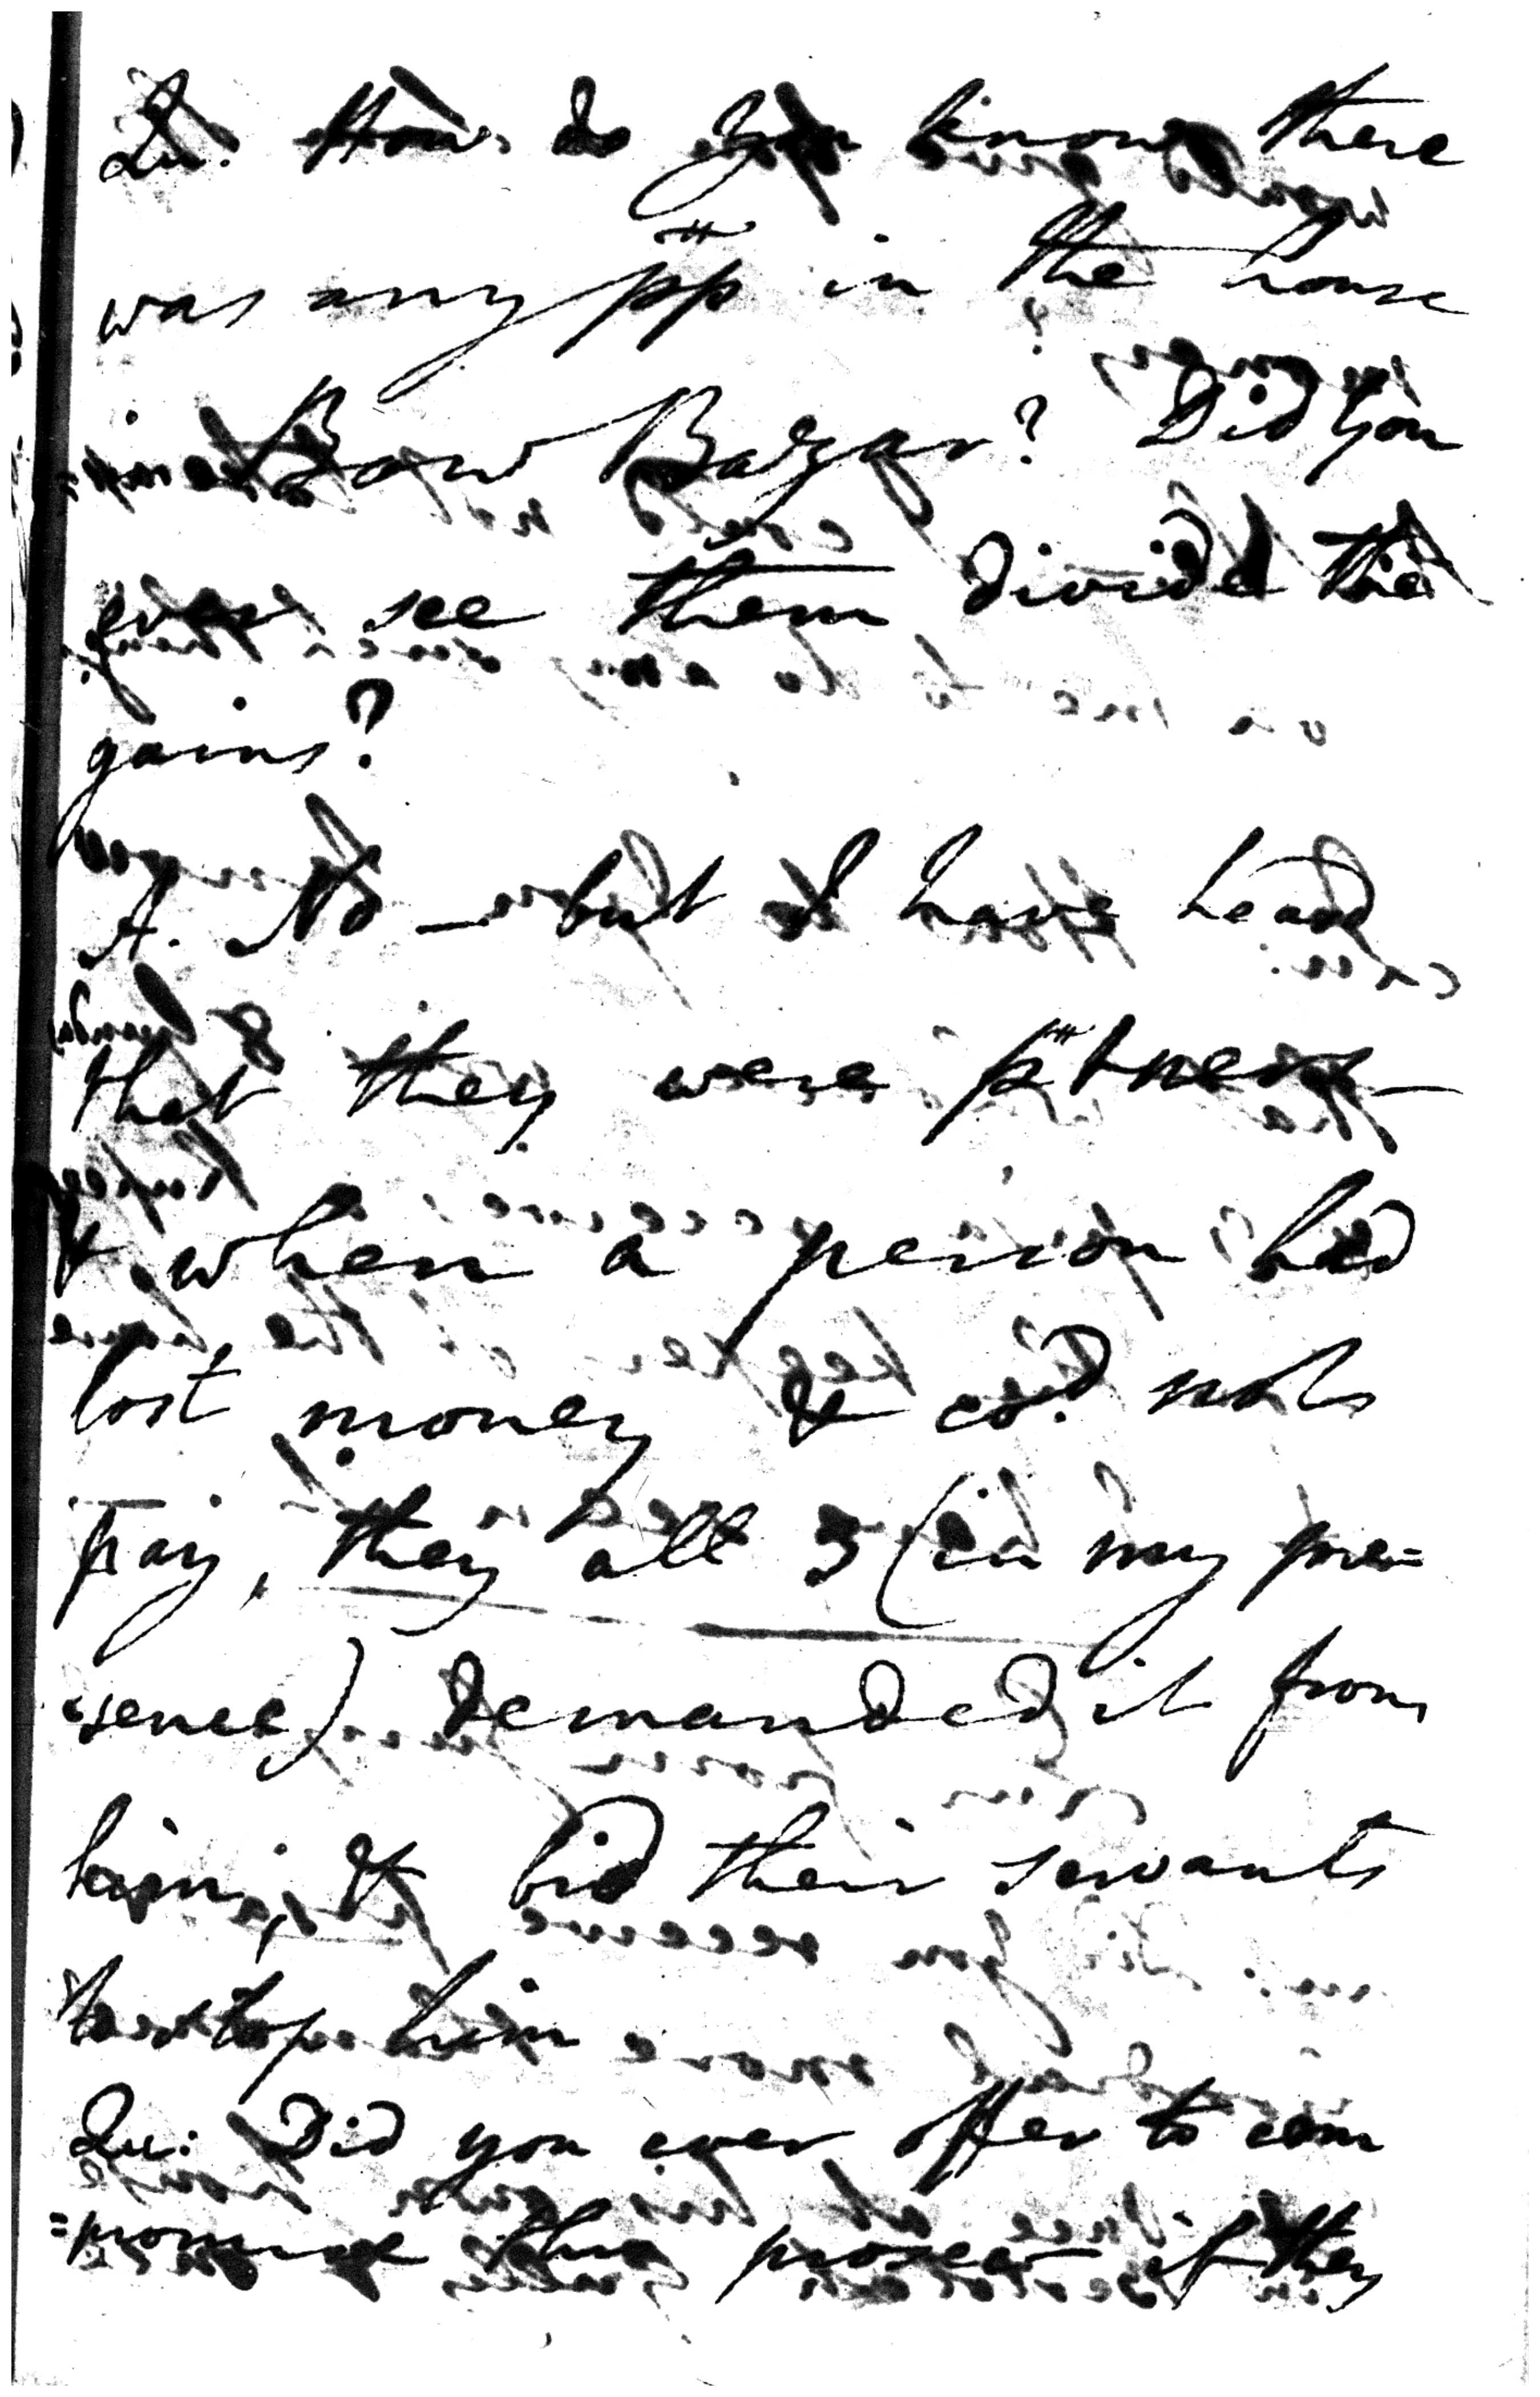 Qu. How do you know there
was any pp in the house
in Bow Bazar? Did you
ever see them divide the
gains?
A. No — but I have heard
that they were ptners —
& when a person had
lost money & cod. not
pay, they all 3 (in my pre=
=sence) demanded it from
him, & bid their servants
to stop him
Qu: Did you ever offer to com
=promise this prosec if they